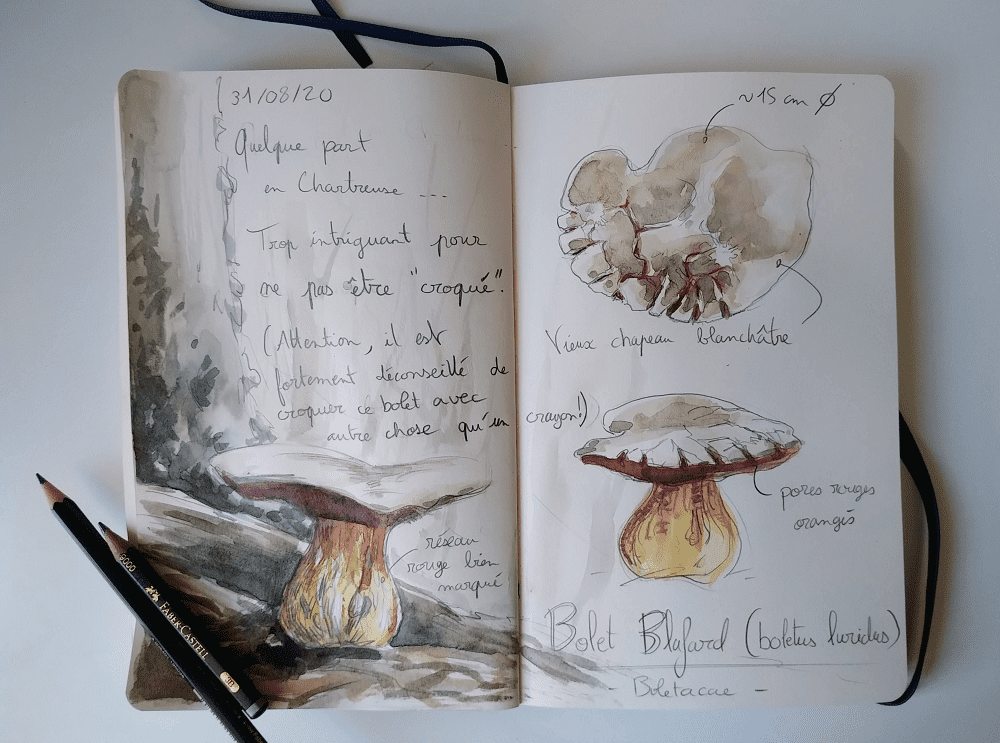 31/08/20
Quelque part
en Chartreuse ...
Trop intriguant pour
ne pas être "croqué".
(Attention, il est
fortement déconseillé de
croquer ce bolet avec
autre chose qu'un crayon!)
réseau
rouge bien
marqué
~15 cm Ø
Vieux chapeau blanchâtre
pores rouges
orangés
Bolet Blafard (boletus luridus)
Boletacae -
9000
FABER-CASTELL